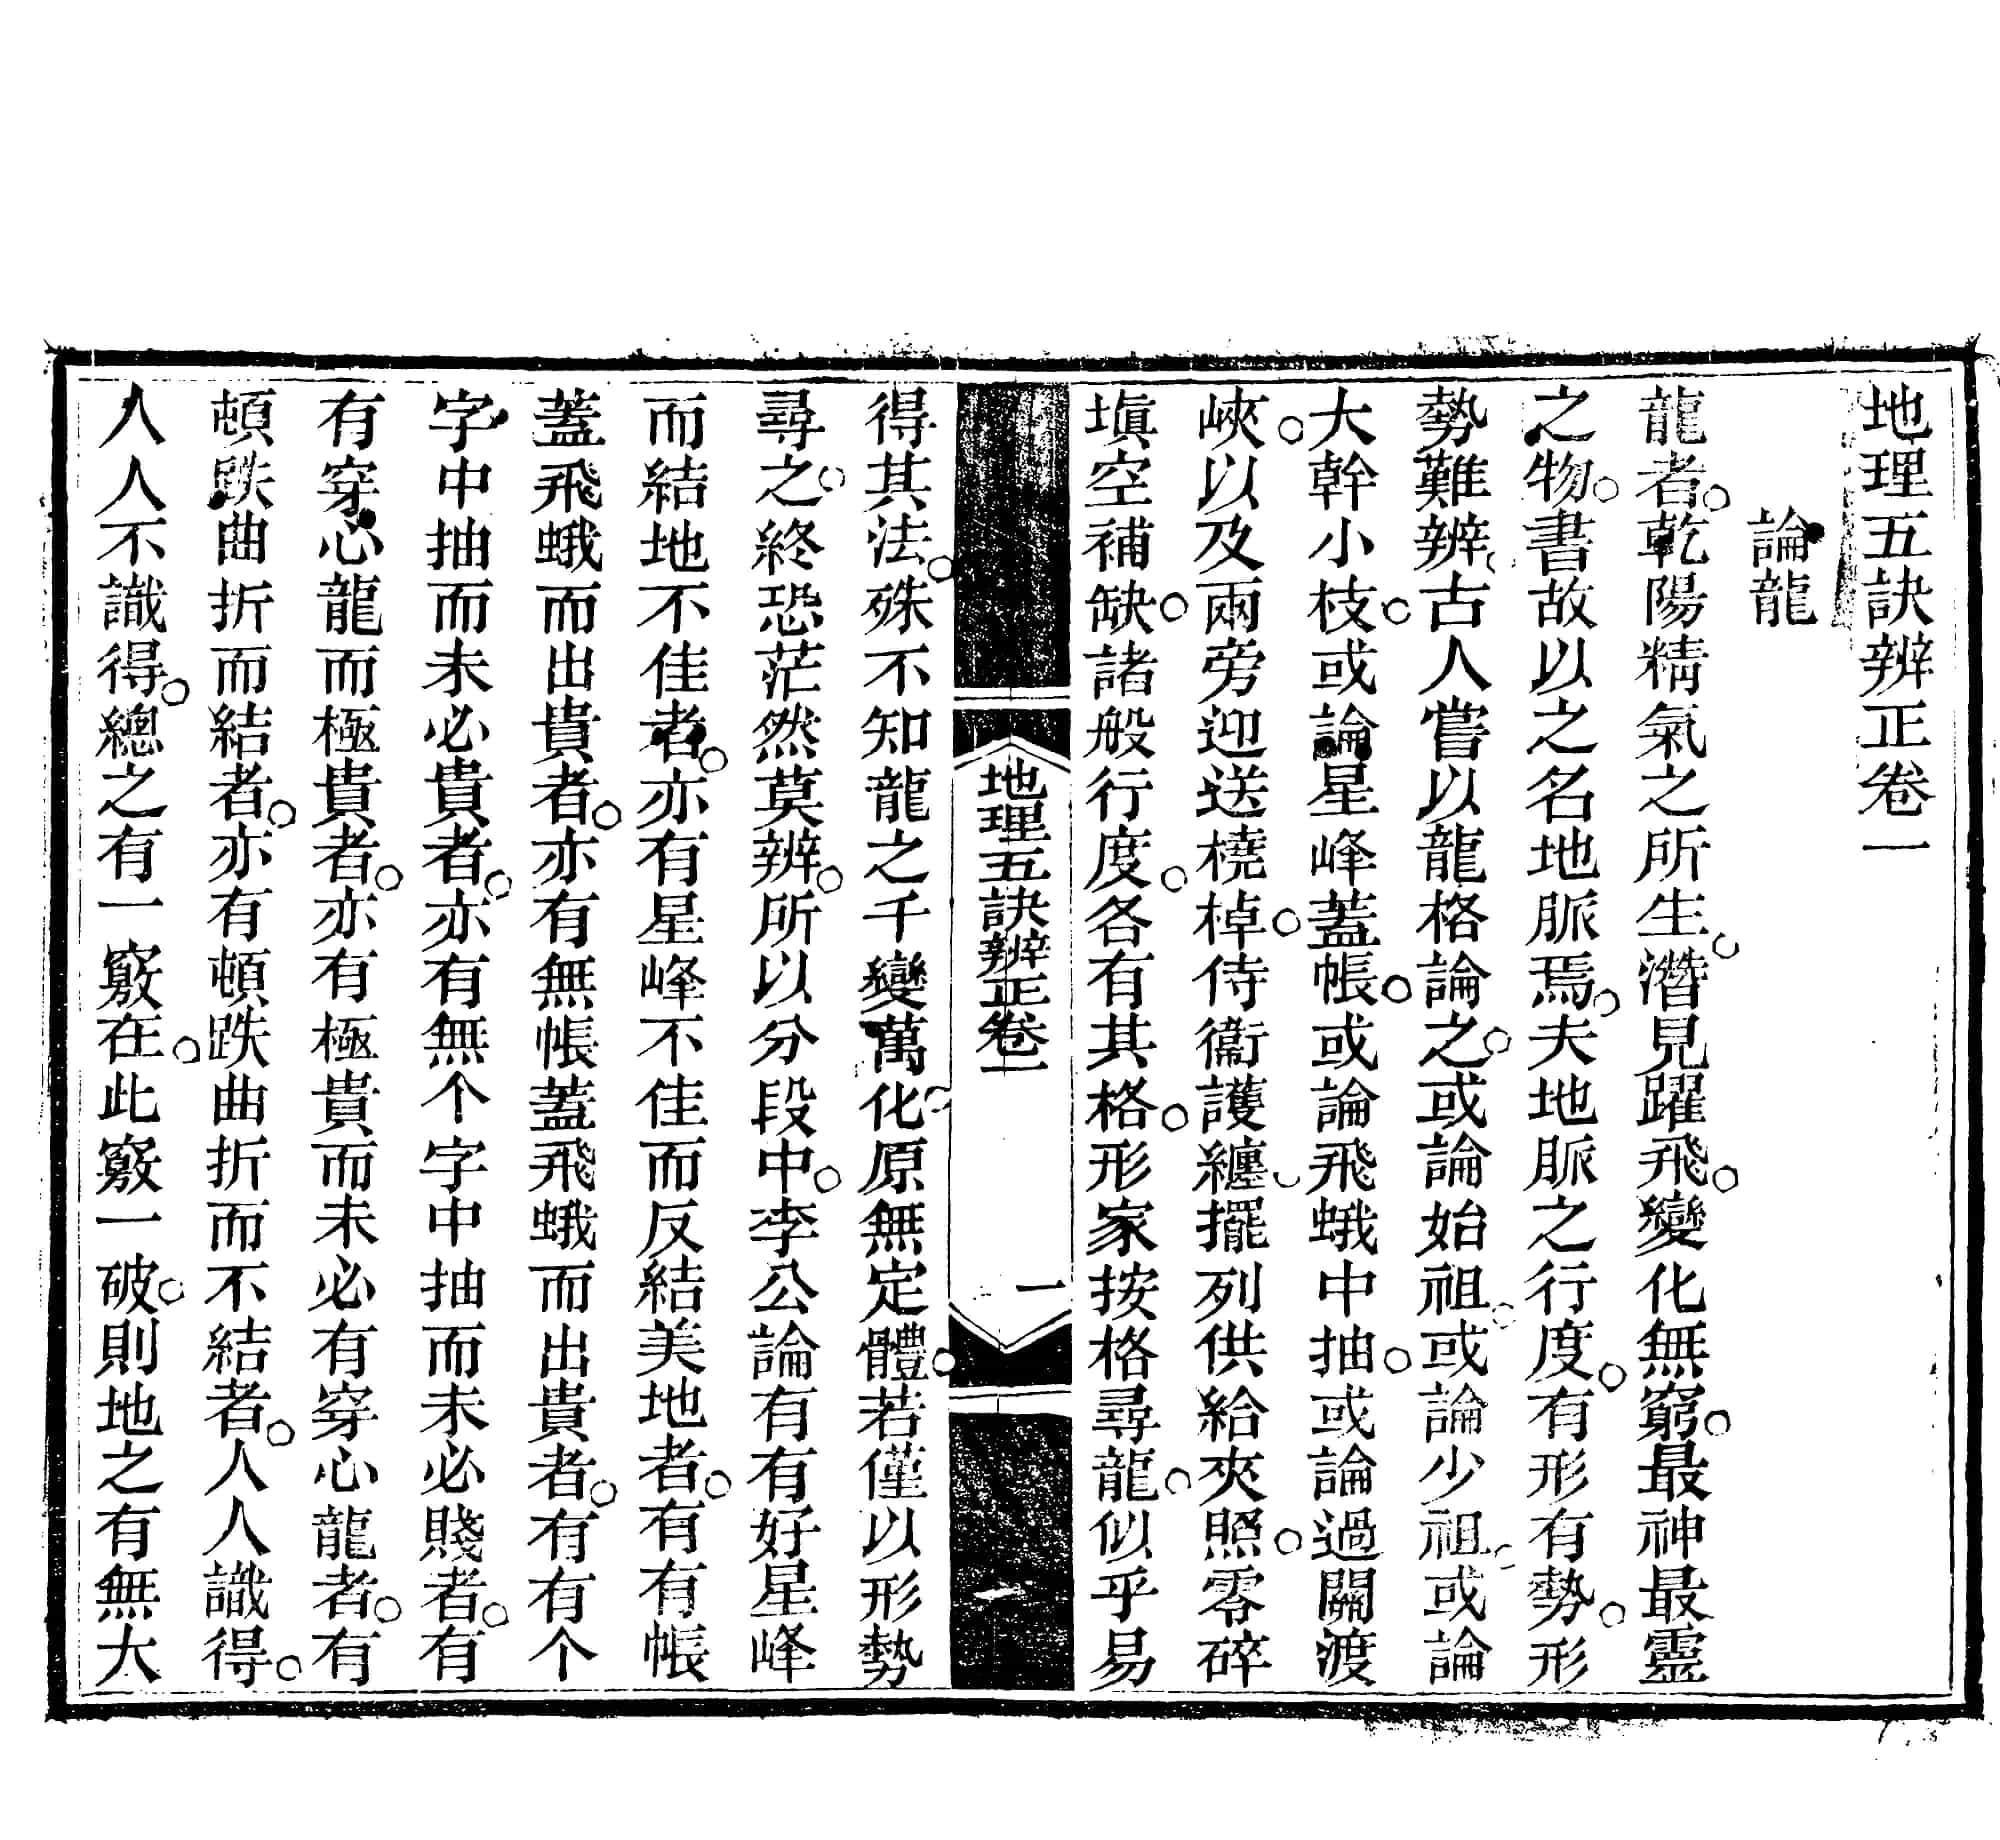 地理五訣辨正卷一
論龍
龍者。乾陽精氣之所生。潛見躍飛。變化無窮。最神最靈
之物。書故以之名地脈焉。夫地脈之行度。有形有勢。形
勢難辨。古人嘗以龍格論之。或論始祖。或論少祖。或論
大幹小枝。或論星峰蓋帳。或論飛蛾中抽。或論過關渡
峽。以及兩旁迎送橈棹。侍衞護纏。擺列供給夾照。零碎
塡空補缺。諸般行度。各有其格。形家按格尋龍。似乎易
地理五訣辨正卷一
一
得其法。殊不知龍之千變萬化。原無定體。若僅以形勢
尋之。終恐茫然莫辨。所以分段中。李公論有有好星峰
而結地不佳者。亦有星峰不佳而反結美地者。有有帳
蓋飛蛾而出貴者。亦有無帳蓋飛蛾而出貴者。有有个
字中抽而未必貴者。亦有無个字中抽而未必賤者。有
有穿心龍而極貴者。亦有極貴而未必有穿心龍者。有
頓跌曲折而結者。亦有頓跌曲折而不結者。人人識得。
人人不識得。總之有一竅在。此竅一破。則地之有無大